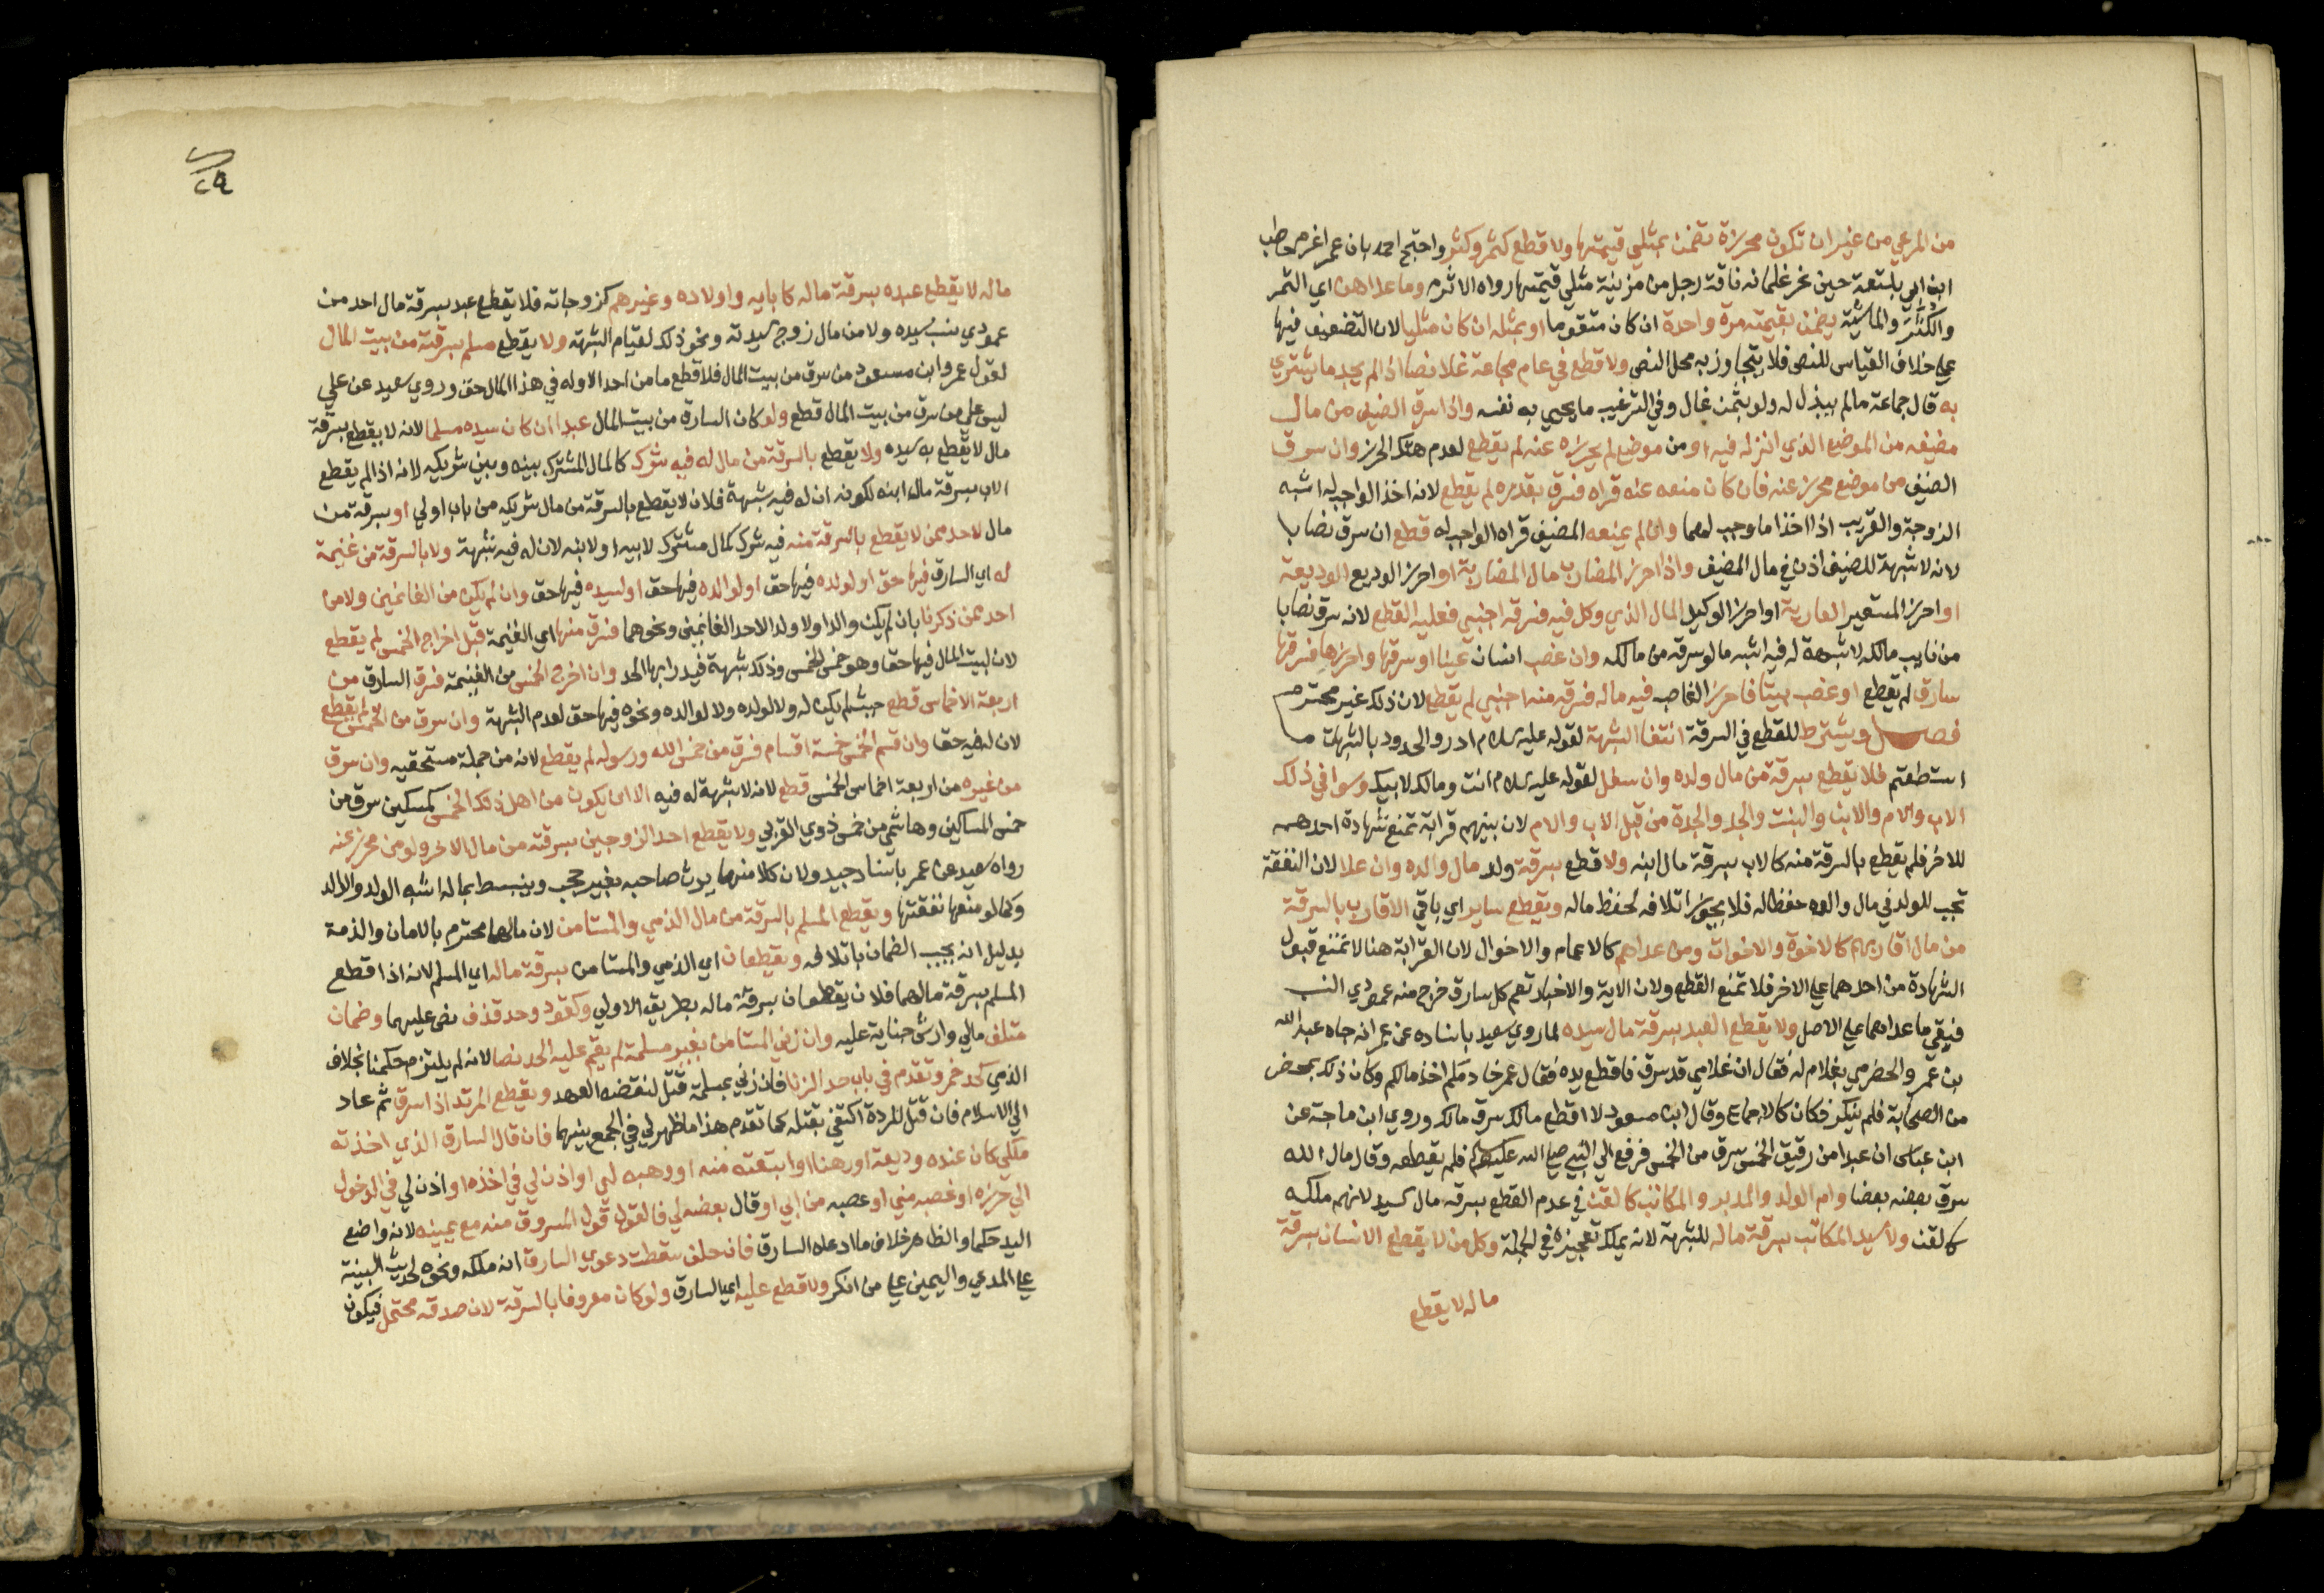 من المرعي من غير ان تكون محرزة تضمن بمثلي قيمتها ولا قطع كثمر وكثر واحتج احمد بان عمر اغرم حاطب
ابن ابي بلتعة حين نحر غلمانه ناقة رجل من مزينة مثلي قيمتها رواه الاثرم وما عداهن اي الثمر
والكثر والماشية يضمن بقيمته مرة واحدة ان كان متقوما او بمثله ان كان مثليا لان التضعيف فيها
علي خلاف القياس للنص فلا يتجاوز به محل النص ولا قطع في عام مجاعة غلا نصا اذا لم يجد ما يشتري
به قال جماعة ما لم يبذل له ولو بثمن غال وفي الترغيب ما يحيي به نفسه واذا سرق الضيف من مال
مضيفه من الموضع الذي انزله فيه او من موضع لم يحرزه عنه لم يقطع لعدم هتك الحرز وان سرق
الضيف من موضع محرز عنه فان كان منعه عنه قراه فسرق بقدره لم يقطع لانه اخذ الواجب له اشبه
الزوجة والقريب اذا اخذا ما وجب لهما وان لم يمنعه المضيف قراه الواجب له قطع ان سرق نصابا
لانه لا شبهة للضيف اذن في مال المضيف واذا احرز المضارب مال المضاربة او احرز الوديع الوديعة
او احرز المستعير العارية او احرز الوكيل المال الذي وكل فيه فسرقه اجنبي فعليه القطع لانه سرق نصابا
من نايب مالكه لا شبهة له فيه اشبه ما لو سرقه من مالكه وان غصب انسان عينا او سرقها واحرزها فسرقها
سارق لم يقطع او غصب بيتا فاحرز الغاصب فيه ماله فسرقه منه اجنبي لم يقطع لان ذلك غير محترم
فصل ويشترط للقطع في السرقة انتفا الشبهة لقوله عليه السلام ادروا الحدود بالشبهات ما
استطعتم فلا يقطع بسرقة من مال ولده وان سفل لقوله عليه السلام انت ومالك لابيك وسوا في ذلك
الاب والام والابن والبنت والجد والجدة من قبل الاب والام لان بينهم قرابة تمنع شهادة احدهم
للاخر فلم يقطع بالسرقة منه كالاب بسرقة مال ابنه ولا قطع بسرقة ولد مال والده وان علا لان النفقة
تجب للولد في مال والده حفظا له فلا يجوز اتلافه لحفظ ماله ويقطع ساير اي باقي الاقارب بالسرقة
من مال اقاربهم كالاخوة والاخوات ومن عداهم كالاعمام والاخوال لان القرابة هنا لا تمنع قبول
الشهادة من احدهما علي الاخر فلا تمنع القطع ولان الاية والاخبار تعم كل سارق خرج منه عمودي النسب
فبقي ما عداهما علي الاصل ولا يقطع العبد بسرقة مال سيده لما روي سعيد باسناده عن عمر انه جاه عبد الله
بن عمرو الحضرمي بغلام له فقال ان غلامي قد سرق فاقطع يده فقال عمر خادمكم اخذ مالكم وكان ذلك بمحضر
من الصحابة فلم ينكر فكان كالاجماع وقال ابن مسعود لا اقطع مالك سرق مالك وروي ابن ماجة عن
ابن عباس ان عبدا من رقيق الخمس سرق من الخمس فرفع الي النبي صلي الله عليه وسلم فلم يقطعه وقال مال الله
سرق بعضه بعضا وام الولد والمدبر والمكاتب كالقن في عدم القطع بسرقة مال سيد لانهم ملكه
كالقن ولا سيد المكاتب بسرقة ماله للشبهة لانه يملك تعجيزه في الجملة وكل من لا يقطع الانسان بسرقة
ماله لا يقطع
ماله لا يقطع عبده بسرقة ماله كابايه واولاده وغيرهم كزوجاته فلا يقطع عبد بسرقة مال احد من
عمودي نسب سيده ولا من مال زوج سيدته ونحو ذلك لقيام الشبهة ولا يقطع مسلم بسرقته من بيت المال
لقول عمر وابن مسعود من سرق من بيت المال فلا قطع ما من احد الا وله في هذا المال حق وروي سعيد عن علي
ليس علي من سرق من بيت المال قطع ولو كان السارق من بيت المال عبدا ان كان سيده مسلما لانه لا يقطع بسرقة
مال لا يقطع به سيده ولا يقطع بالسرقة من مال له فيه شرك كالمال المشترك بينه وبين شريكه لانه اذا لم يقطع
الاب بسرقة مال ابنه لكونه ان له فيه شبهة فلان لا يقطع بالسرقة من مال شريكه من باب اولي او بسرقة من
مال لاحد ممن لا يقطع بالسرقة منه فيه شرك كمال مشترك لابيه او لابنه لان له فيه شبهة ولا بالسرقة من غنيمة
له اي السارق فيها حق او لولده فيها حق او لوالده فيها حق او لسيده فيها حق وان لم يكن من الغانمين ولا من
احد ممن ذكرنا بان لم يكن والدا ولا ولدا لاحد الغانمين ونحوهما فسرق منها اي الغنيمة قبل اخراج الخمس لم يقطع
لان لبيت المال فيها حقا وهو خمس الخمس وذلك شبهة فيدرا بها الحد وان اخرج الخمس من الغنيمة فسرق السارق من
اربعة الاخماس قطع حيث لم يكن له ولا لولده ولا لوالده ونحوه فيها حق لعدم الشبهة وان سرق من الخمس لم يقطع
لان له فيه حقا وان قسم الخمس خمسة اقسام فسرق من خمس الله ورسوله لم يقطع لانه من جملة مستحقيه وان سرق
من غيره من اربعة اخماس الخمس قطع لانه لا شبهة له فيه الا ان يكون من اهل ذلك الخمس كمسكين سرق من
خمس المساكين وهاشمي من خمس ذوي القربي ولا يقطع احد الزوجين بسرقته من مال الاخر ولو من محرز عنه
رواه سعيد عن عمر باسناد جيد ولان كلا منهما يرث صاحبه بغير حجب وينبسط بماله اشبه الولد والوالد
وكما لو منعها نفقتها ويقطع المسلم بالسرقة من مال الذمي والمستامن لان مالهما محترم بالامان والذمة
بدليل انه يجب الضمان باتلافه ويقطعان اي الذمي والمستامن بسرقة ماله اي المسلم لانه اذا قطع
المسلم بسرقة مالهما فلان يقطعان بسرقة ماله بطريق الاولي وكقود وحد قذف نص عليهما وضمان
متلف مالي وارش جناية عليه وان زني المستامن بغير مسلمة لم يقم عليه الحد نصا لانه لم يلتزم حكمنا بخلاف
الذمي كحد خمر وتقدم في باب حد الزنا فان زني بمسلمة قتل لنقضه العهد ويقطع المرتد اذا سرق ثم عاد
الي الاسلام فان قتل للردة اكتفي بقتله كما تقدم هذا ما ظهر لي في الجمع بينهما فان قال السارق الذي اخذته
ملكي كان عنده وديعة او رهنا او ابتعته منه او وهبه لي او اذن لي في اخذه او اذن لي في الدخول
الي حرزه او غصبه مني او غصبه من ابي او قال بعضه لي فالقول قول المسروق منه مع يمينه لانه واضع
اليد حكما والظاهر خلاف ما ادعاه السارق فان حلف سقطت دعوي السارق انه ملكه ونحوه لحديث البينة
علي المدعي واليمين علي من انكر ولا قطع عليه اي السارق ولو كان معروفا بالسرقة لان صدقه محتمل فيكون